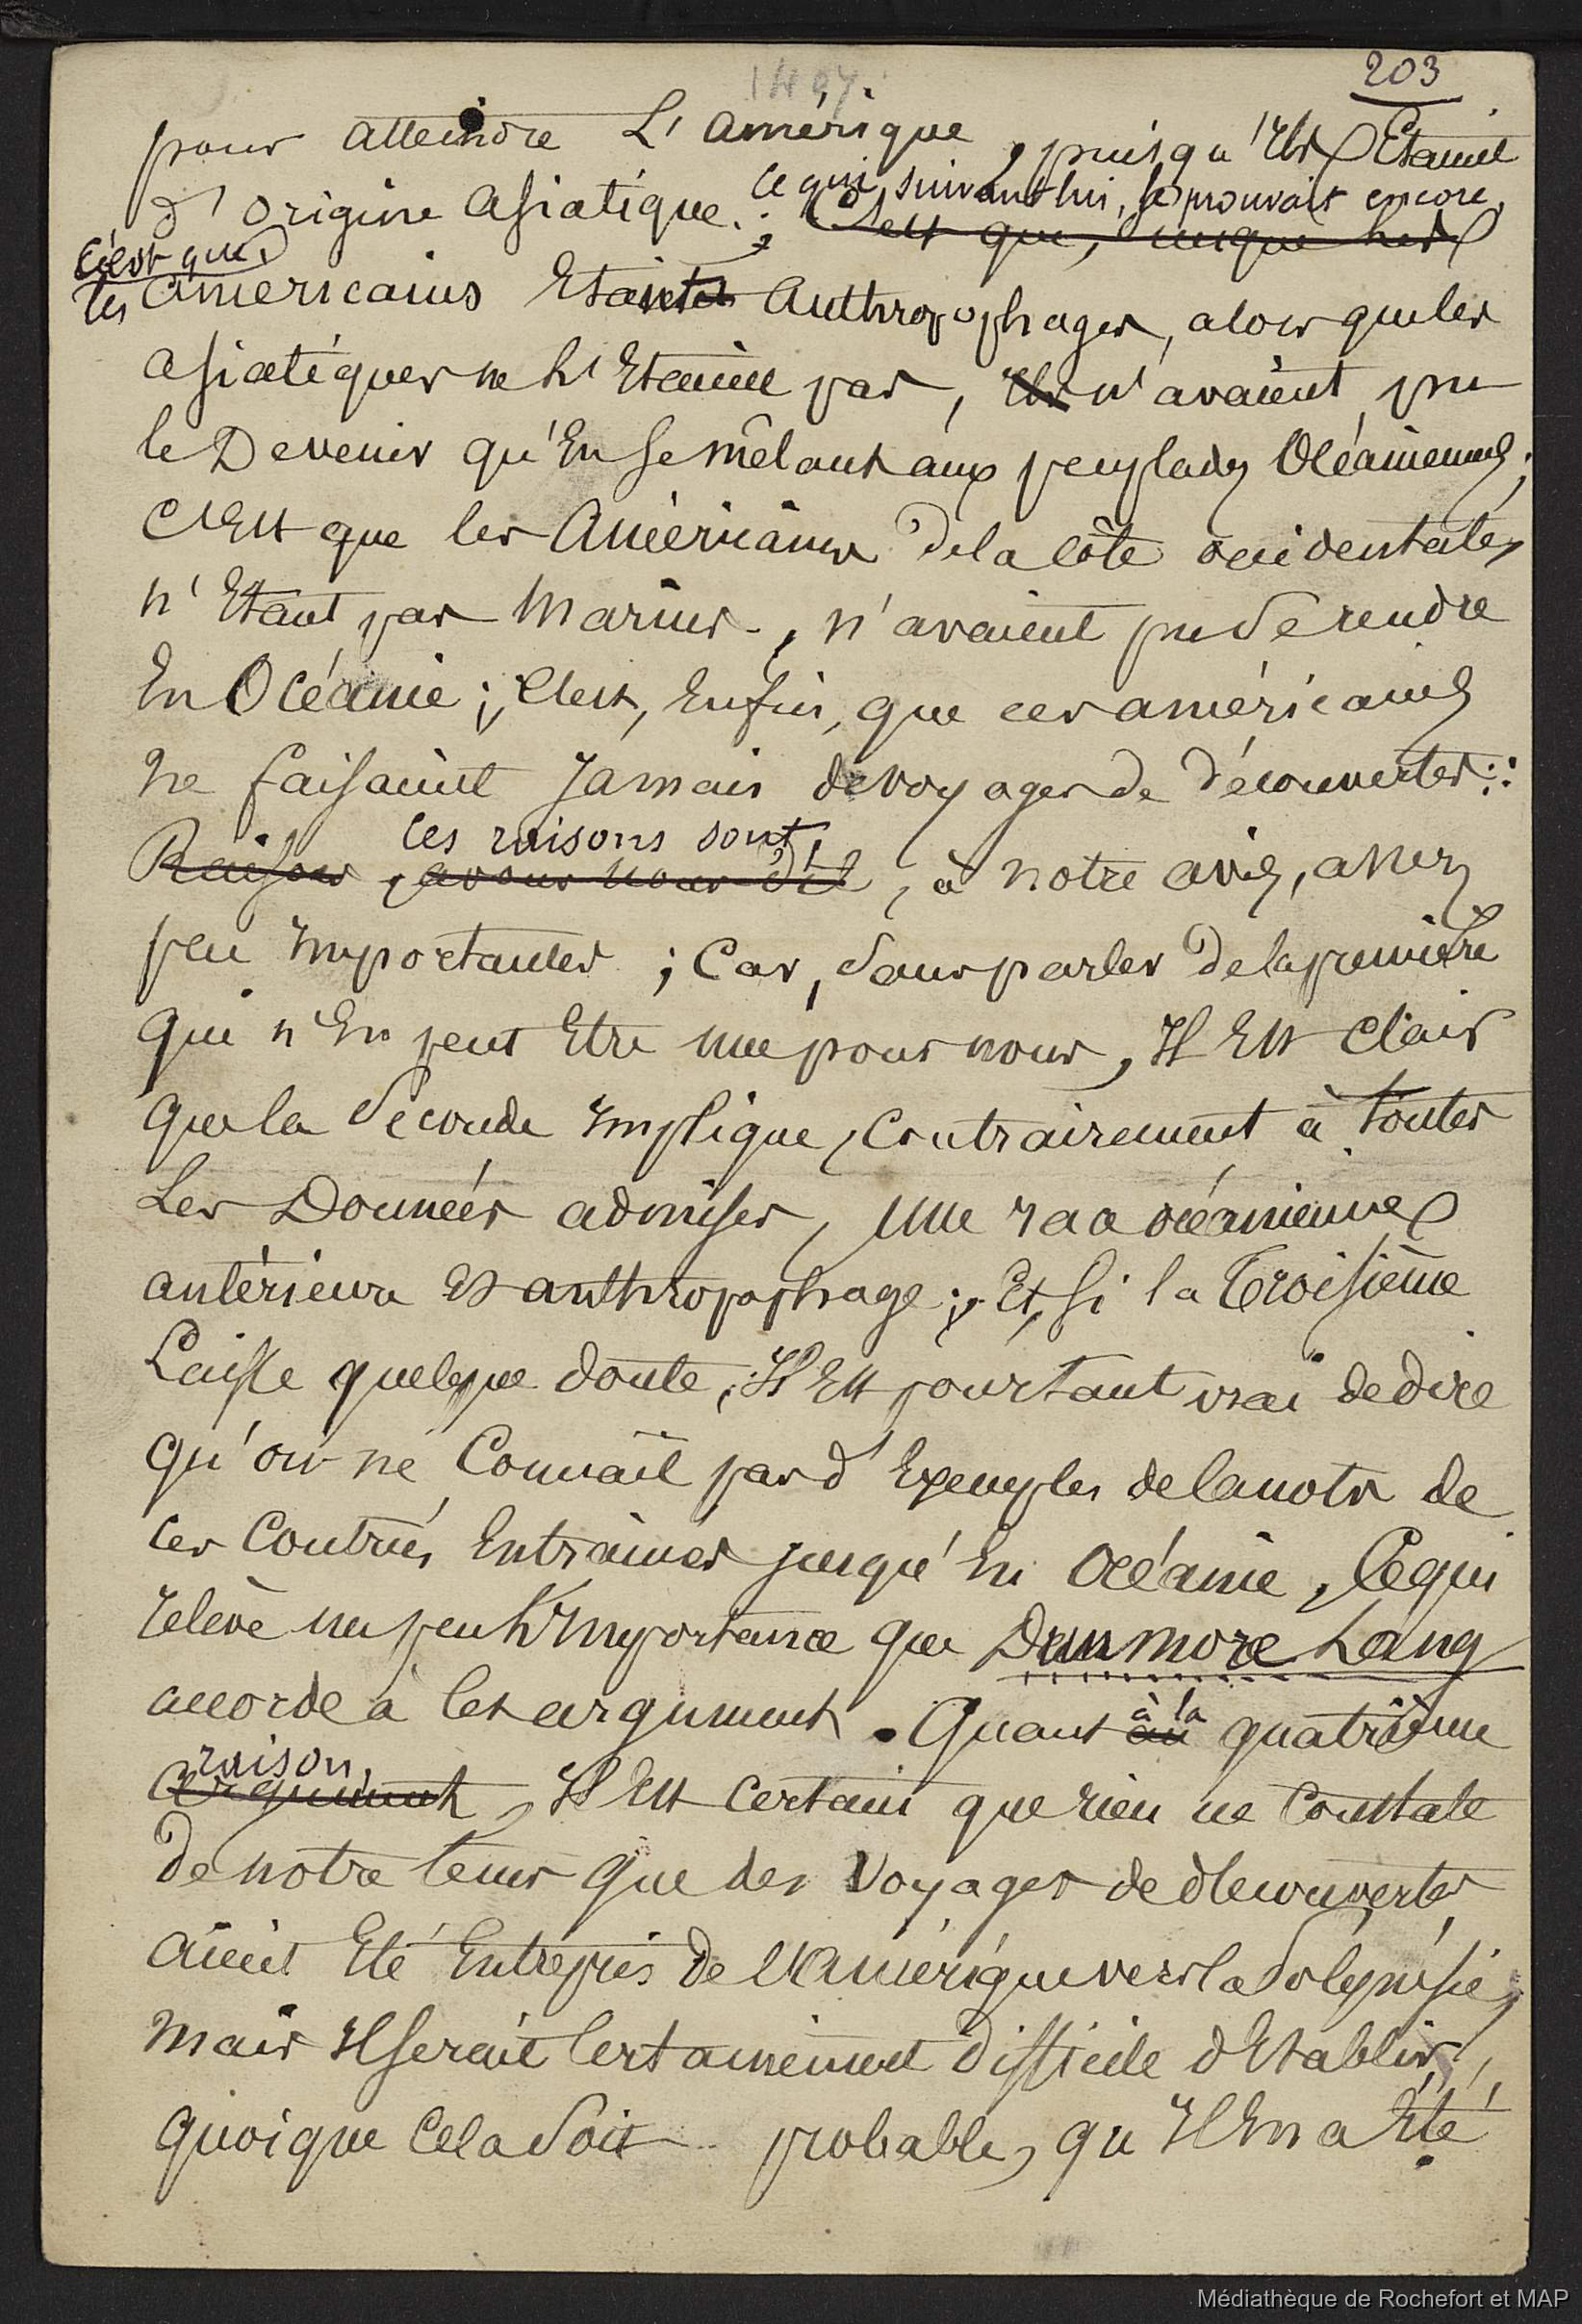 1407.
203
pour atteindre L'amérique, puisqu'Ils Etaient
d'origine asiatique. ; ce qui, suivant lui, le prouvait encore,
C'est que, puisque les
c'est que
les américains Etaient Anthropophages, alors que les
asiatiques ne l'Etaient pas, Ils n'avaient pu
le Devenir qu'En se mêlant aux peuplades Océaniennes;
C'Est que les Américains de la côte occidentale,
n'Etant pas Marins, n'avaient pu se rendre
En Océanie ; C'est, Enfin, que ces américains
ne faisaient Jamais de voyages de découvertes :
Ces raisons sont,
Raisons, avons nous dit, à notre avis, assez
peu Importantes ; Car, sans parler de la première
qui n'En peut Etre une pour nous, Il Est clair
que la seconde Implique, Contrairement à toutes
Les Données admises, une race océanienne
antérieure Et anthropophage ; Et, si la Troisième
Laisse quelque doute, Il Est pourtant vrai de dire
qu'on ne Connait pas d'Exemples de canots de
ces Contrées Entrainés jusqu'En Océanie, Ce qui
relève un peu l'Importance que Dunmore Lang
accorde à cet argument. Quant au à la quatrième
raison,
argument, Il Est certain que rien ne Constate
de notre tems que des Voyages de découvertes
aient Eté Entrepris de l'Amérique vers la Polynésie,
mais Il serait Certainement difficile d'Etablir,
quoique Cela soit probable, qu'Il En a Eté
Médiathèque de Rochefort et MAP